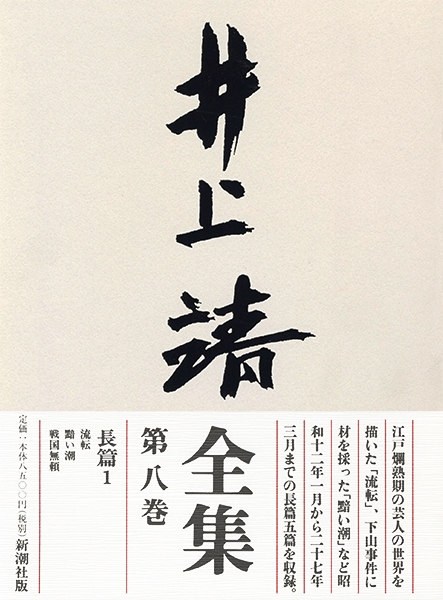 井上靖
全集
第八巻
江戸爛熟期の芸人の世界を
描いた「流転」、下山事件に
材を採った「黯い潮」など昭
和十二年一月から二十七年
三月までの長篇五篇を収録。
長篇1
流転
黯い潮
戦国無頼
定価：本体八五〇〇円（税別）新潮社版